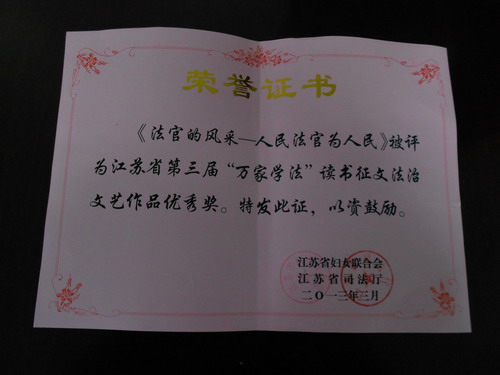 荣誉证书
《法官的风采—人民法官为人民》被评
为江苏省第三届“万家学法”读书征文法治
文艺作品优秀奖。特发此证，以资鼓励。
江苏省妇女联合会
江苏省司法厅
二〇一三年三月